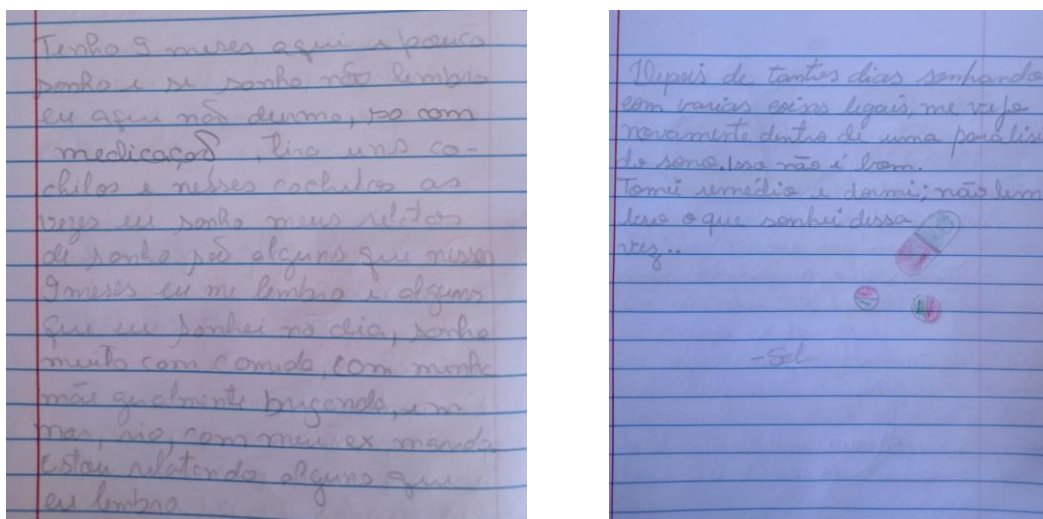 Tenho 9 meses aqui e pouco
sonho e se sonho não lembro
eu aqui não durmo, so com
medicação, tiro uns co-
chilos e nesses cochilos as
vezes eu sonho meus relatos
de sonho são alguns que nesses
9 meses eu me lembro e alguns
que eu sonhei no dia, sonho
muito com comida, com minha
mãe geralmente brigando, em
mar, rio, com meu ex marido.
Estou relatando alguns que
eu lembro
Depois de tantos dias sonhando
com varias coisas legais, me vejo
novamente dentro de uma paralisi
do sono. Isso não é bom.
Tomei remédio e dormi; não lem
bro o que sonhei dessa
vez..
-Sol